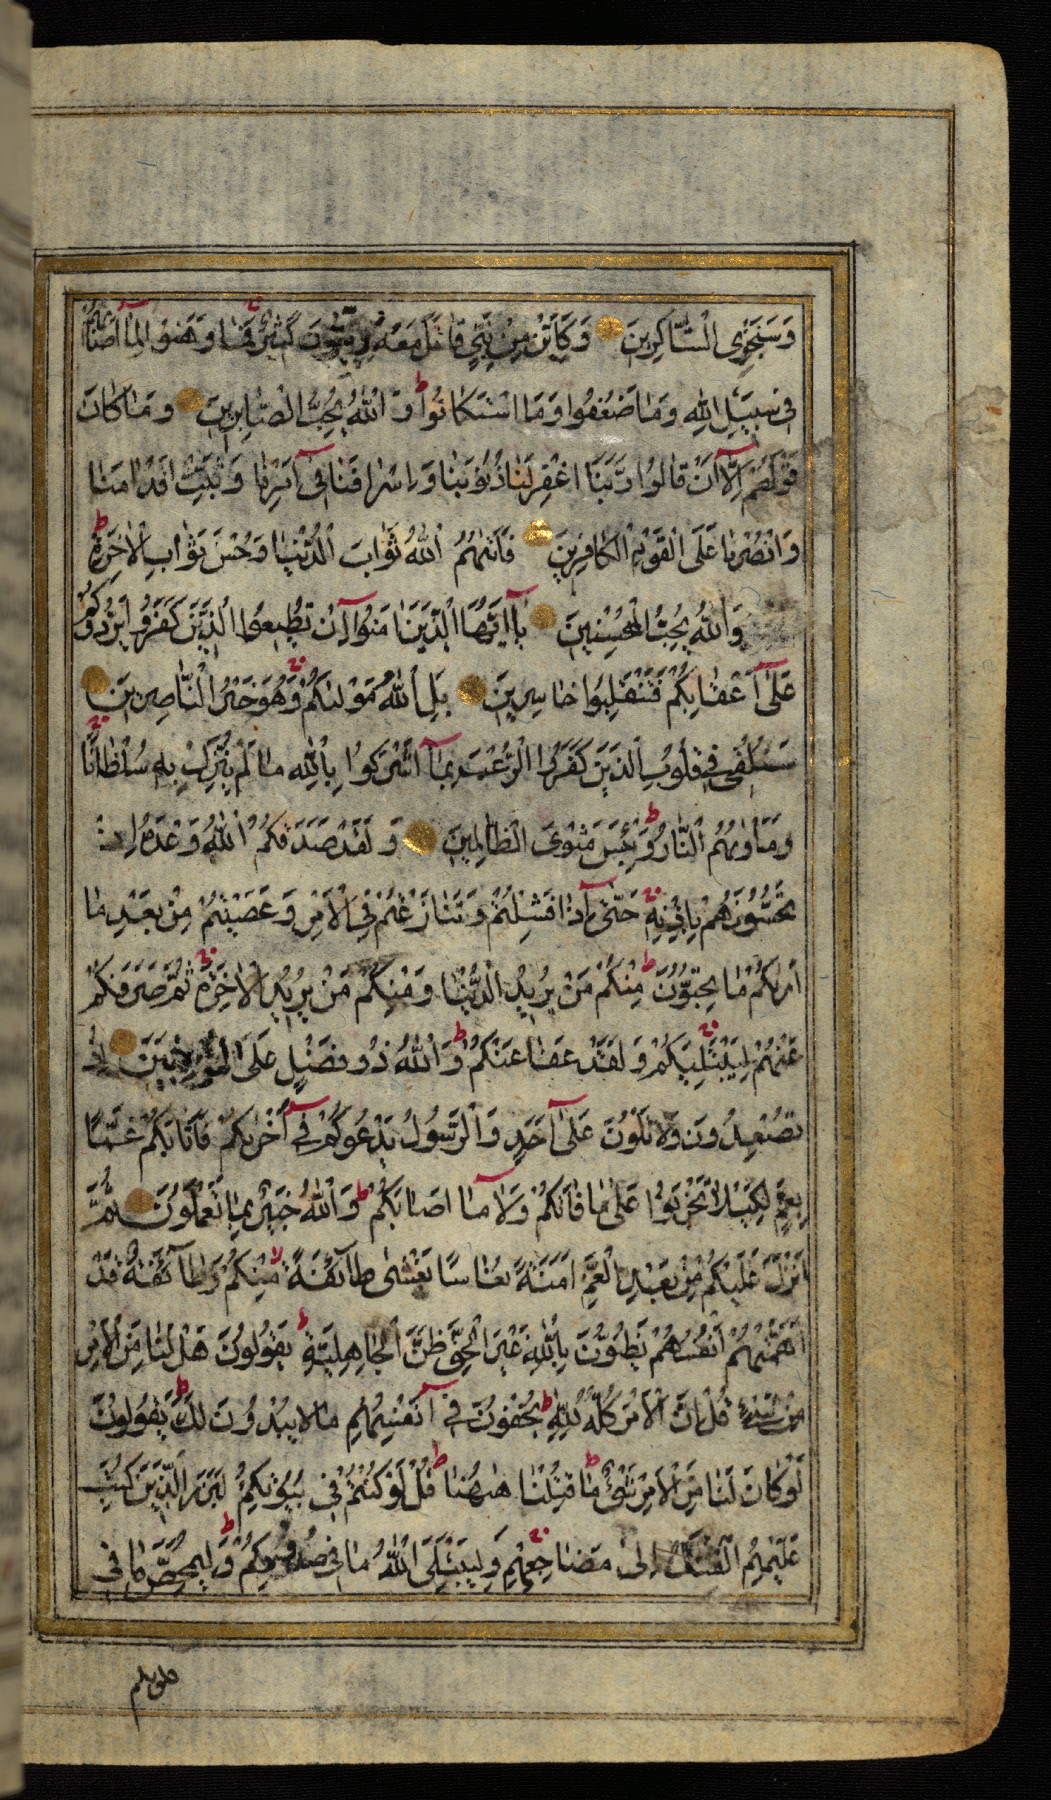 وَسَنَجْزِى الْشَّاكِرِينَ وَكَاَيِّنْ مِنْ نَبِيٍّ قَاتَلَ مَعَهُ رِبِّيُّونَ كَثِيرٌ فَمٰا وَهَنُوا لِمٰآ اَصٰابَهُمْ
فِى سَبِيلِ اللّٰهِ وَمٰا ضَعُفُوا وَمَا اسْتَكٰانُوا وَاللّٰهُ يُحِبُّ الْصّٰابِرِينَ وَمٰا كٰانَ
قَوْلَهُمْ اِلّٰآ اَنْ قٰالُوا رَبَّنَا اغْفِرْ لَنٰا ذُنُوبَنٰا وَاِسْرٰافَنٰا فِىٓ اَمْرِنٰا وَثَبِّتْ اَقْدٰامَنٰا
وَانْصُرْنٰا عَلَى الْقَوْمِ الْكٰافِرِينَ فَاٰتٰهُمُ اللّٰهُ ثَوٰابَ الْدُّنْيٰا وَحُسْنَ ثَوٰابِ الْاٰخِرَةِ
وَاللّٰهُ يُحِبُّ الْمُحْسِنِينَ يٰآ اَيُّهَا الَّذِينَ اٰمَنُوٓا اِنْ تُطِيعُوا الَّذِينَ كَفَرُوا يَرُدُّوكُمْ
عَلٰىٓ اَعْقٰابِكُمْ فَتَنْقَلِبُوا خٰاسِرِينَ بَلِ اللّٰهُ مَوْلٰىكُمْ وَهُوَ خَيْرُ الْنّٰاصِرِينَ
سَنُلْقِى فِى قُلُوبِ الَّذِينَ كَفَرُوا الْرُّعْبَ بِمٰآ اَشْرَكُوا بِاللّٰهِ مٰا لَمْ يُنَزِّلْ بِهِ سُلْطٰانًا
وَمَاْوٰىهُمُ الْنّٰارُ وَبِئْسَ مَثْوَى الْظّٰالِمِينَ وَلَقَدْ صَدَقَكُمُ اللّٰهُ وَعْدَهُ اِذْ
تَحُسُّونَهُمْ بِاِذْنِهِ حَتّٰىٓ اِذٰا فَشِلْتُمْ وَتَنٰازَعْتُمْ فِى الْاَمْرِ وَعَصَيْتُمْ مِنْ بَعْدِ مٰا
اَرٰىكُمْ مٰا تُحِبُّونَ مِنْكُمْ مَنْ يُرِيدُ الْدُّنْيٰا وَمِنْكُمْ مَنْ يُرِيدُ الْاٰخِرَةَ ثُمَّ صَرَفَكُمْ
عَنْهُمْ لِيَبْتَلِيَكُمْ وَلَقَدْ عَفٰا عَنْكُمْ وَاللّٰهُ ذُو فَضْلٍ عَلَى الْمُؤْمِنِينَ اِذْ
تُصْعِدُونَ وَلٰا تَلْوُنَ عَلٰىٓ اَحَدٍ وَالْرَّسُولُ يَدْعُوكُمْ فِىٓ اُخْرٰىكُمْ فَاَثٰابَكُمْ غَمًّا
بِغَمٍّ لِكَيْلٰا تَحْزَنُوا عَلٰى مٰا فٰاتَكُمْ وَلٰا مٰآ اَصٰابَكُمْ وَاللّٰهُ خَبِيرٌ بِمٰا تَعْمَلُونَ ثُمَّ
اَنْزَلَ عَلَيْكُمْ مِنْ بَعْدِ الْغَمِّ اَمَنَةً نُعٰاسًا يَغْشٰى طٰآئِفَةً مِنْكُمْ وَطٰآئِفَةٌ قَدْ
اَهَمَّتْهُمْ اَنْفُسُهُمْ يَظُنُّونَ بِاللّٰهِ غَيْرَ الْحَقِّ ظَنَّ الْجٰاهِلِيَّةِ يَقُولُونَ هَلْ لَنٰا مِنَ الْاَمْرِ
مِنْ شَىْءٍ قُلْ اِنَّ الْاَمْرَ كُلَّهُ لِلّٰهِ يُخْفُونَ فِىٓ اَنْفُسِهِمْ مٰا لٰا يُبْدُونَ لَكَ يَقُولُونَ
لَوْ كٰانَ لَنٰا مِنَ الْاَمْرِ شَىْءٌ مٰا قُتِلْنٰا هٰهُنٰا قُلْ لَوْ كُنْتُمْ فِى بُيُوتِكُمْ لَبَرَزَ الَّذِينَ كُتِبَ
عَلَيْهِمُ الْقَتْلُ اِلٰى مَضٰاجِعِهِمْ وَلِيَبْتَلِىَ اللّٰهُ مٰا فِى صُدُورِكُمْ وَلِيُمَحِّصَ مٰا فِى
قلوبكم